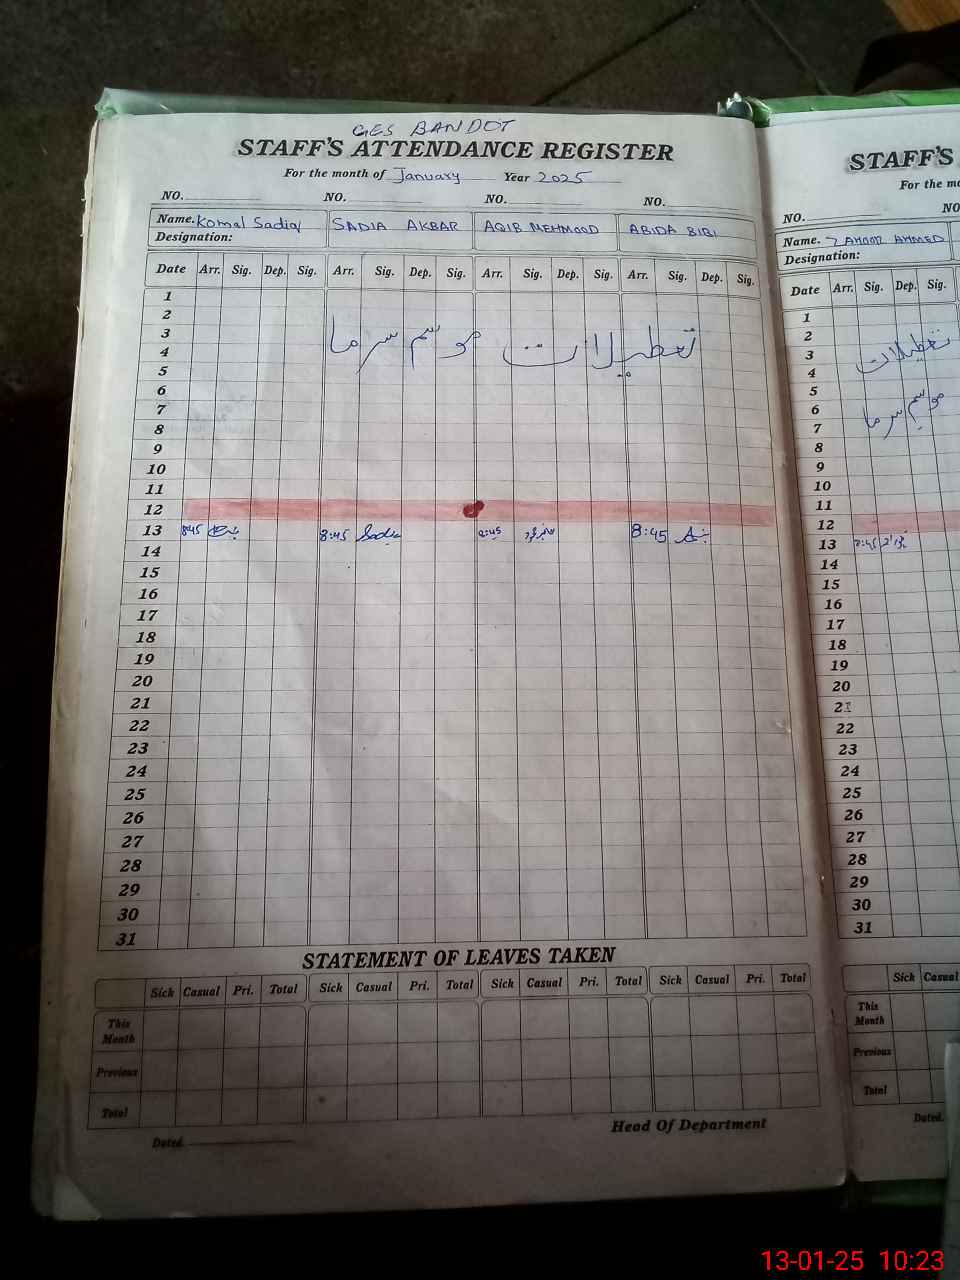 GES BANDOT
STAFF'S ATTENDANCE REGISTER
For the month of January Year 2025
NO. NO. NO. NO.
Name. Komal Sadiq SADIA AKBAR AQIB MEHMOOD ABIDA BIBI
Designation:
Date Arr. Sig. Dep. Sig. Arr. Sig. Dep. Sig. Arr. Sig. Dep. Sig. Arr. Sig. Dep. Sig.
1
2
3
تعطیلات موسم سرما
4
5
6
7
8
9
10
11
12
13 8:45 8:45 Sadia 8:45 8:45
14
15
16
17
18
19
20
21
22
23
24
25
26
27
28
29
30
31
STATEMENT OF LEAVES TAKEN
Sick Casual Pri. Total Sick Casual Pri. Total Sick Casual Pri. Total Sick Casual Pri. Total
This Month
Previous
Total
Dated. Head Of Department
STAFF'S
For the mo
NO. NO
Name. ZAHOOR AHMED
Designation:
Date Arr. Sig. Dep. Sig.
1
2
3
تعطیلات
4
5
6
موسم سرما
7
8
9
10
11
12
13 8:45
14
15
16
17
18
19
20
21
22
23
24
25
26
27
28
29
30
31
Sick Casual
This Month
Previous
Total
Dated.
13-01-25 10:23